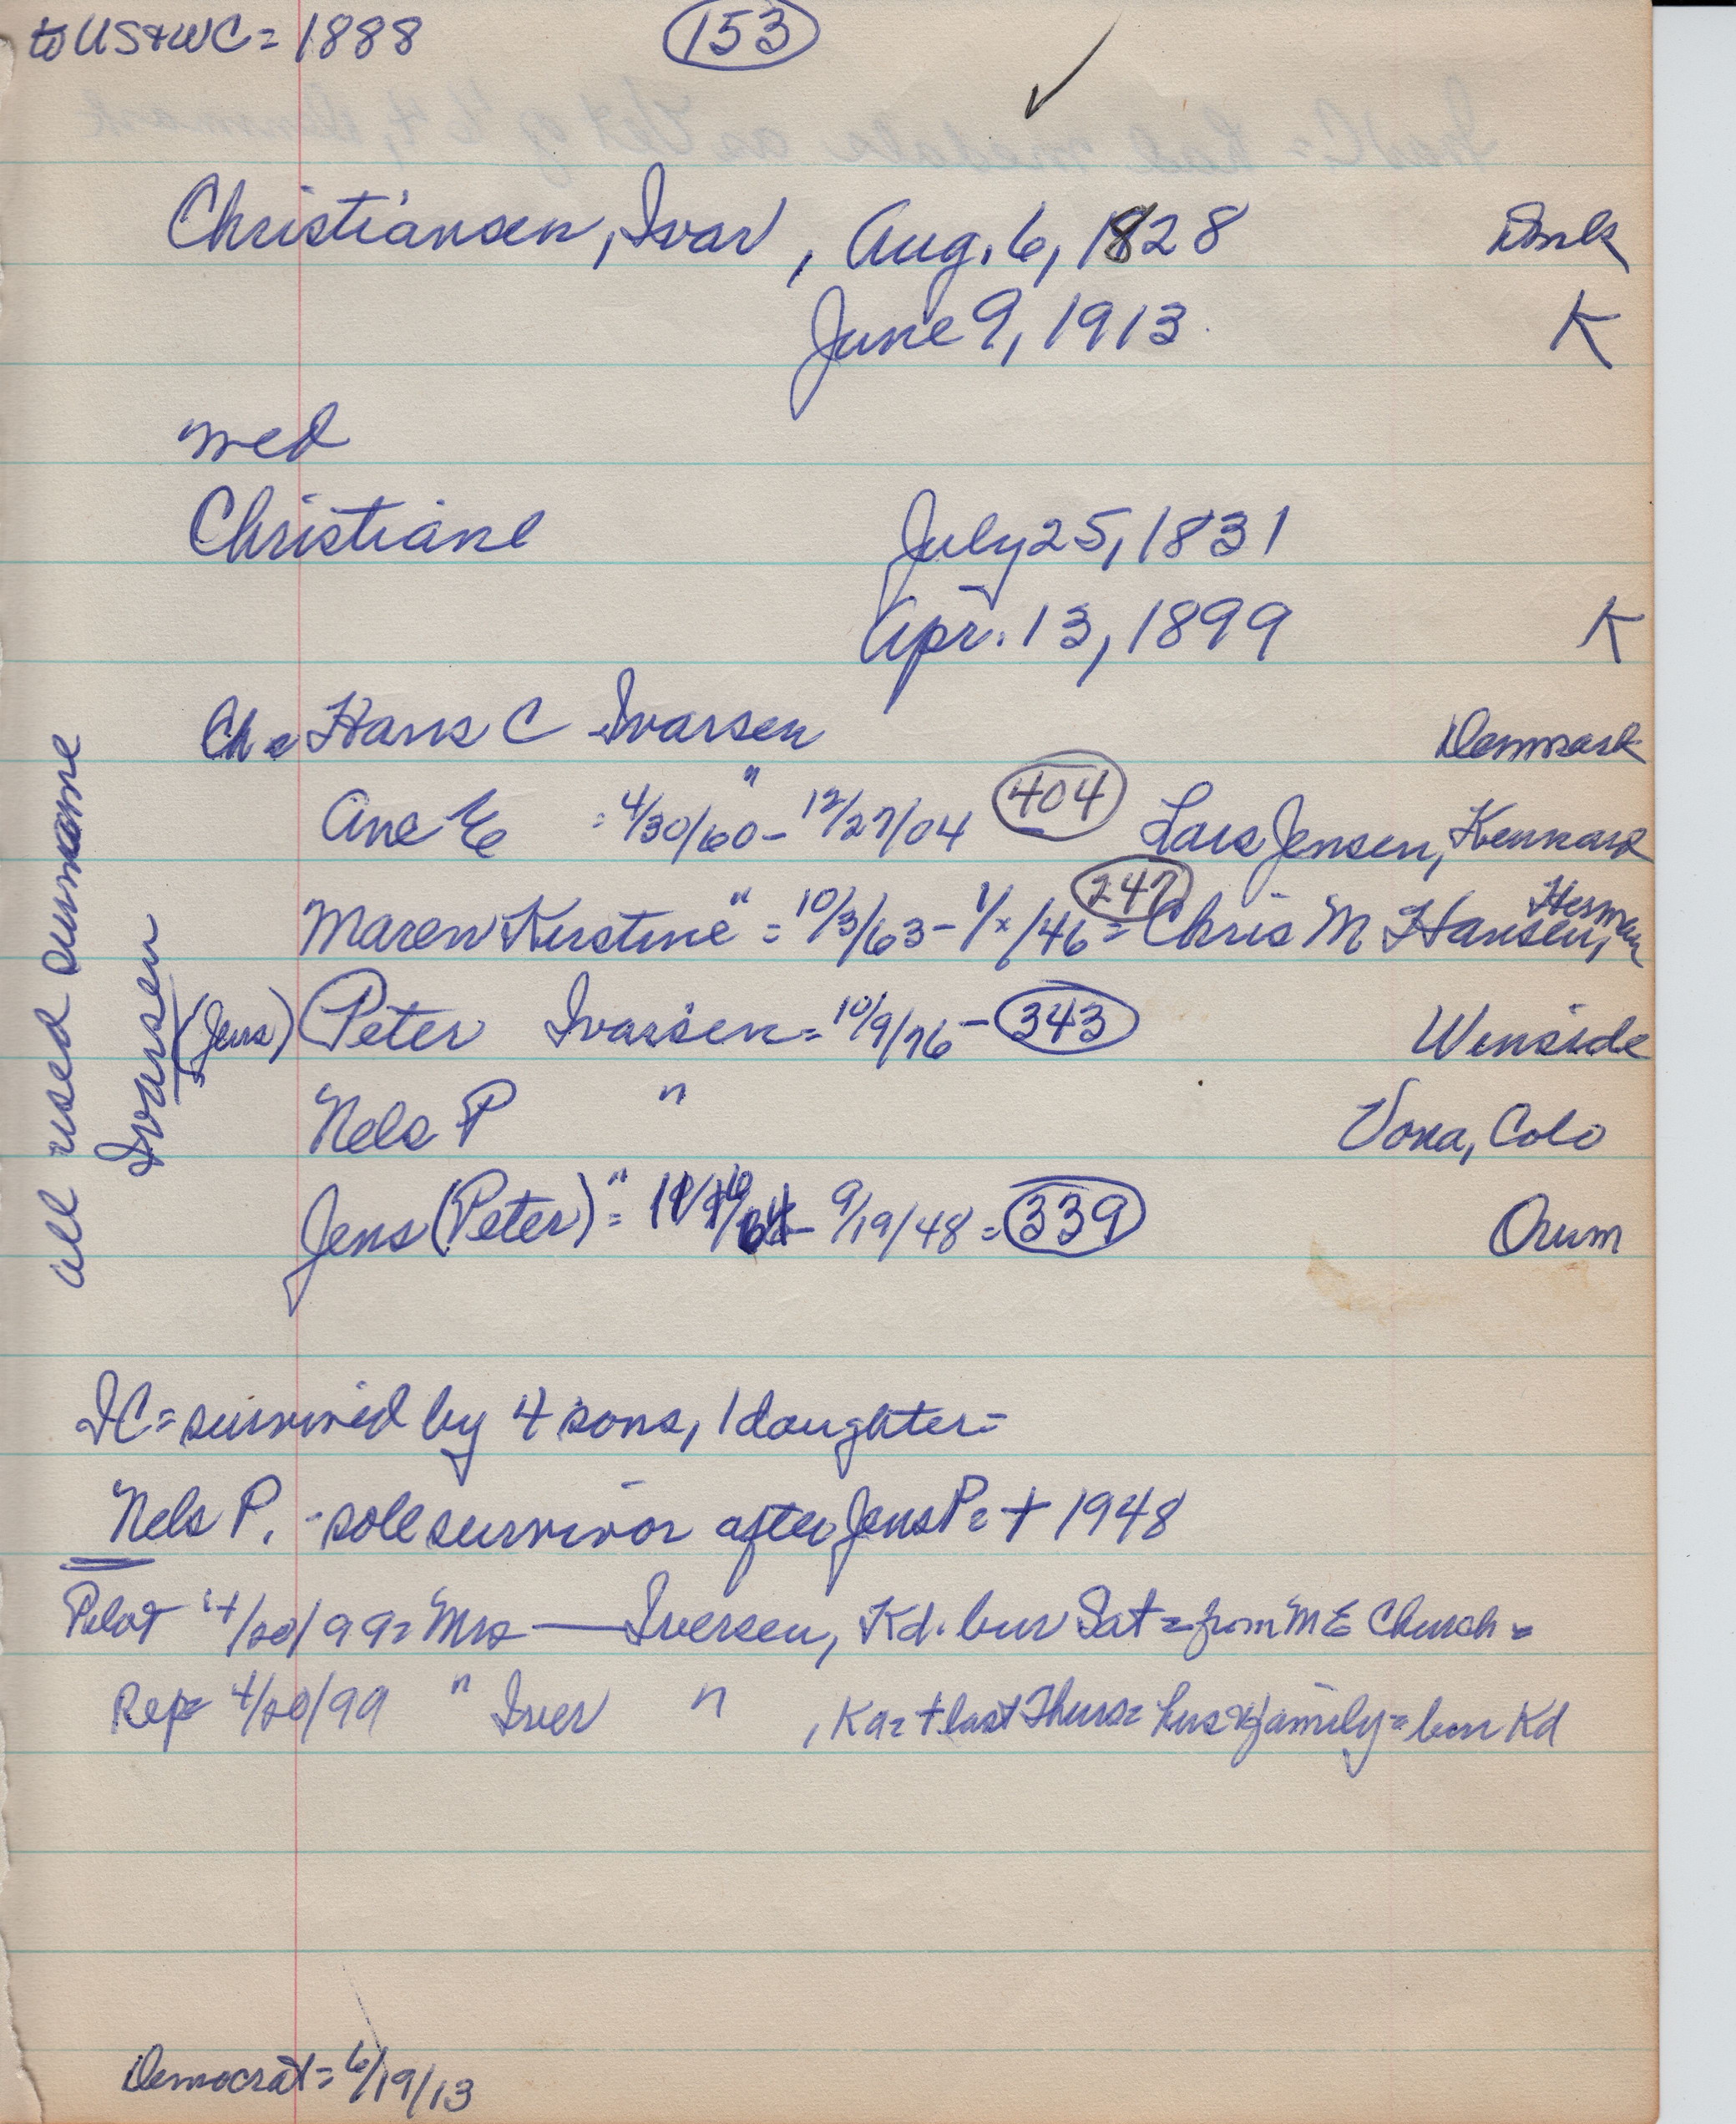 to US & WC = 1888
153
Christiansen, Ivar, Aug. 6, 1828 Dmk
June 9, 1913 K
med
Christiane July 25, 1831
Apr. 13, 1899 K
Ch = Hans C Ivarsen Denmark
Ane E " = 4/30/60 - 12/27/04 404 Lars Jensen, Kennard
Maren Kirstine " = 10/3/63 - 1/x/46 = 247 Chris M Hansen, Herman
(Jens) Peter Ivarsen = 10/9/76 - 343 Winside
Nels P " Vona, Colo
Jens (Peter) " = 9/19/48 = 339 Orum
all used surname
Ivarsen
IC = survived by 4 sons, 1 daughter =
Nels P. - sole survivor after Jens P = + 1948
Pilot 4/20/99 = Mrs — Iversen, Kd. bur Sat = from ME Church =
Rep = 4/20/99 " Iver " , Kd = + last Thurs = hus & family = bur Kd
Democrat = 6/19/13